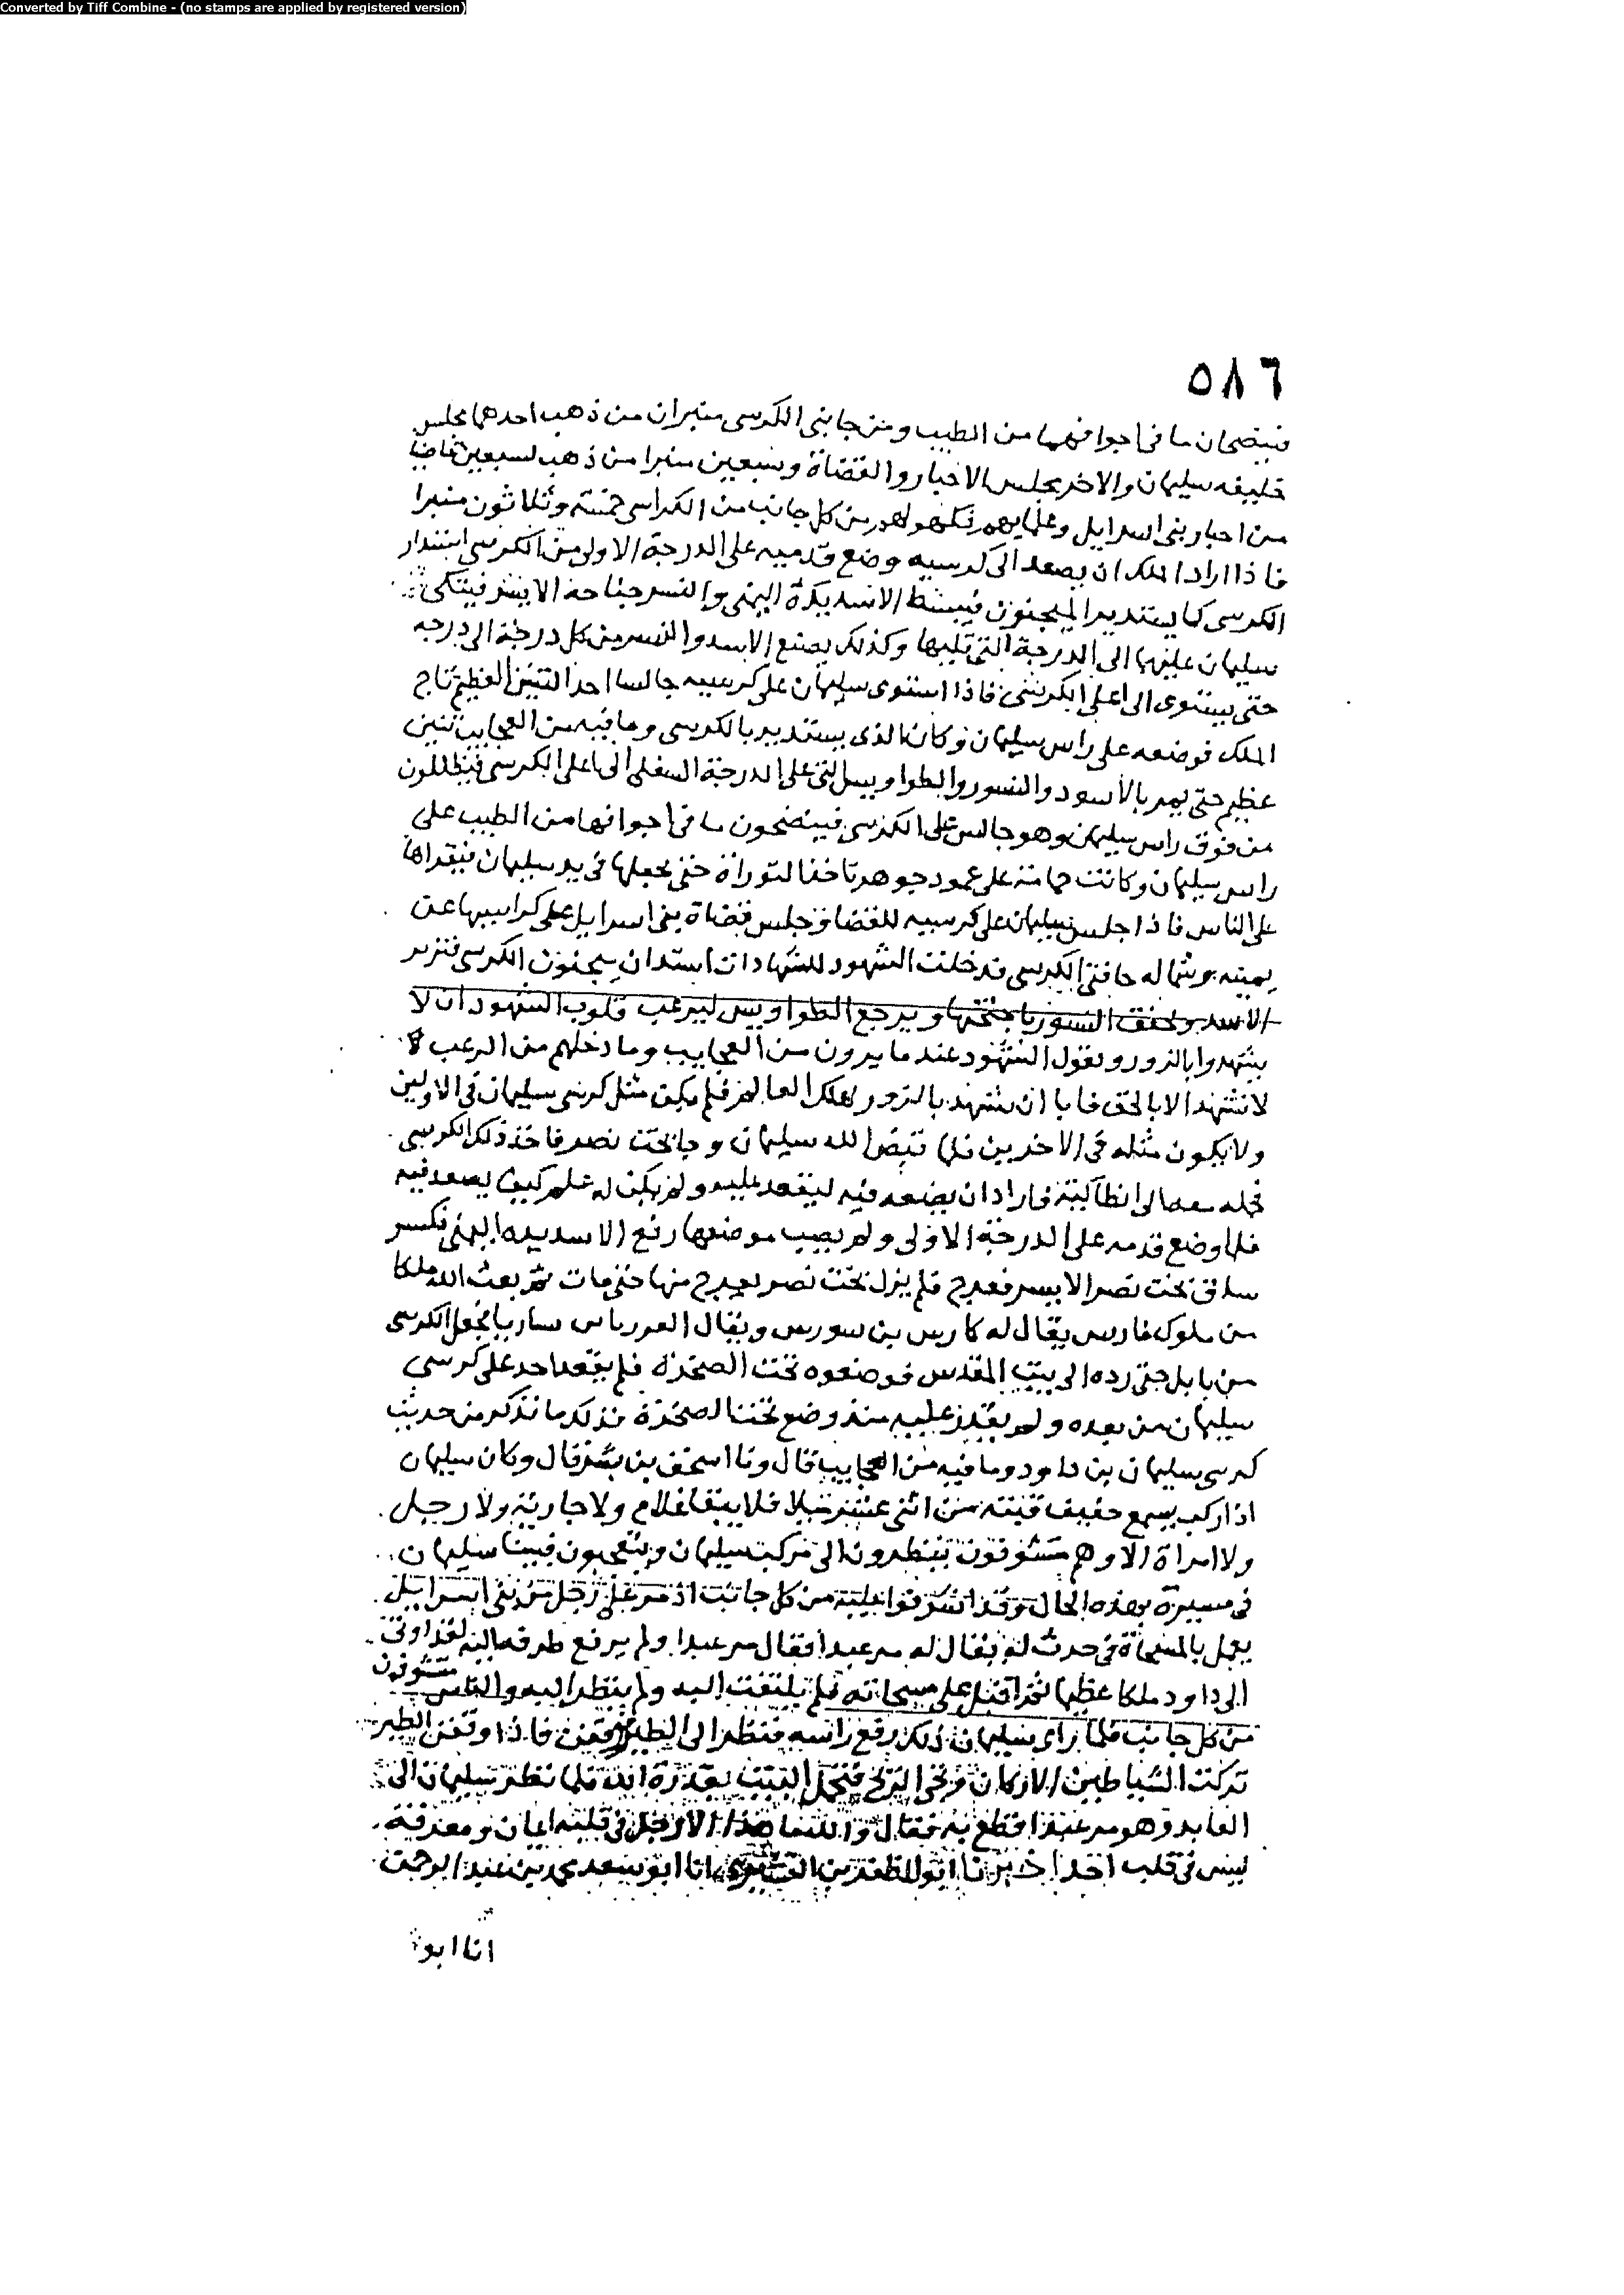 Converted by Tiff Combine - (no stamps are applied by registered version)
٥٨٦
فينضحان ما فى اجوافهما من الطيب ومن جانبى الكرسى منبران من ذهب احدهما مجلس
خليفه سليمان والاخر مجلس الاحبار والقضاة وسبعين منبرا من ذهب لسبعين قاضيا
من احبار بنى اسرايل وعلمايهم وكهولهم من كل جانب من الكراسى خمسة وثلاثون منبرا
فاذا اراد الملك ان يصعد الى كرسيه وضع قدميه على الدرجة الاولى من الكرسى استدار
الكرسى كما يستدير المنجنون فيبسط الاسد يده اليمنى والنسر جناحه الايسر فيتكى
سليمان عليهما الى الدرجة التى تليها وكذلك يصنع الاسد والنسر من كل درجة الى درجه
حتى يستوى الى اعلى الكرسى فاذا استوى سليمان على كرسيه جالسا اخذ التنين العظيم تاج
الملك فوضعه على راس سليمان وكان الذى يستدير بالكرسى وما فيه من العجايب تنين
عظيم حتى يمر بالاسود والنسور والطواويس التى على الدرجة السفلى الى اعلى الكرسى فيظللون
من فوق راس سليمن وهو جالس على الكرسى فينضحون ما فى اجوافها من الطيب على
راس سليمان وكانت حمامة على عمود جوهر تاخذ التوراة حتى يجعلها فى يد سليمان فيقراها
على الناس فاذا جلس سليمان على كرسيه للقضا وجلس قضاة بنى اسرايل على كراسيها عن
يمينه وشماله حافتى الكرسى قد دخلت الشهود للشهادات استدار منجنون الكرسى فتزير
الاسد وتخفق النسور باجنحتها ويرجع الطواويس ليرعب قلوب الشهود ان لا
يشهدوا بالزور ويقول الشهود عند ما يرون من العجايب وما دخلهم من الرعب
لا نشهد الا بالحق فايا ان نشهد بالزور لهلك العالم فلم يكن مثل كرسى سليمان فى الاولين
ولا يكون مثله فى الاخرين فلما قبض الله سليمان وجا بخت نصر فاخذ ذلك الكرسى
فحمله معه الى انطاكية فاراد ان يضعه فيه ليقعد عليه ولم يكن له علم كيف يصعد فيه
فلما وضع قدمه على الدرجة الاولى ولم يصب موضعها رفع الاسد يده اليمنى فكسر
ساق بخت نصر الايسر فعرج فلم يزل بخت نصر يعرج منها حتى مات ثم بعث الله ملكا
من ملوك فارس يقال له كارس بن سورس ويقال العورباس ساربا فجعل الكرسى
من بابل حتى رده الى بيت المقدس فوضعوه تحت الصخرة فلم يقعد احد على كرسى
سليمان من بعده ولم يقدر عليه منذ وضع تحت الصخرة فذلك ما نذكر من حديث
كرسى سليمان بن داود وما فيه من العجايب قال ونا اسحق بن بشر قال وكان سليمان
اذا ركب يسمع حفيف من اثنى عشر ميلا فلا يبقا غلام ولا جارية ولا رجل
ولا امراة الا وهم متشوفون ينظرون الى مركب سليمان ويتعجبون فبينا سليمان
فى مسيره بهذه الحال وقد اشرفوا عليه من كل جانب اذ مر على رجل من بنى اسرايل
يعمل بالمسحاة فى حرث له يقال له مرعبدا فقال مرعبدا ولم يرفع طرفه اليه لقد اوتى
الى داود ملكا عظيما ثم اقبل على مسحاته فلم يلتفت اليه ولم ينظر اليه والناس متشوفون
من كل جانب فلما راى سليمان ذلك رفع راسه فنظر الى الطير فوقفن فاذا وقفن الطير
تركت الشياطين الاركان فتحمل البيت بقدرة الله فلما نظر سليمان الى
العابد وهو مرعبدا فقال والله ما هذا الا رجل فى قلبه ايمان ومعرفة
ليس فى قلب احد اخبرنا ابو المظفر بن القشيرى انا ابو سعد محمد بن عبد الرحمن
انا ابو